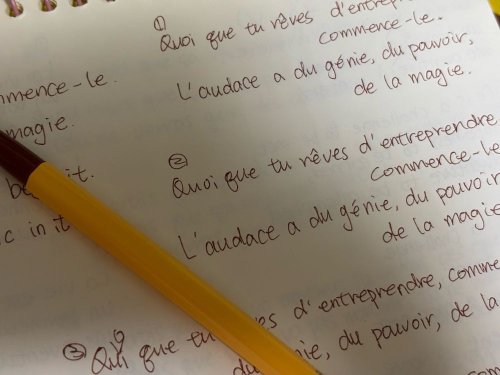 ①
Quoi que tu rêves d'entrepr
commence-le.
L'audace a du génie, du pouvoir,
de la magie.
mmence-le.
magie.
it.
c in it
②
Quoi que tu rêves d'entreprendre
commence-le
L'audace a du génie, du pouvoir
de la magie
③ Qui que tu es d'entreprendre, comme
du nie, du pouvoir, de la